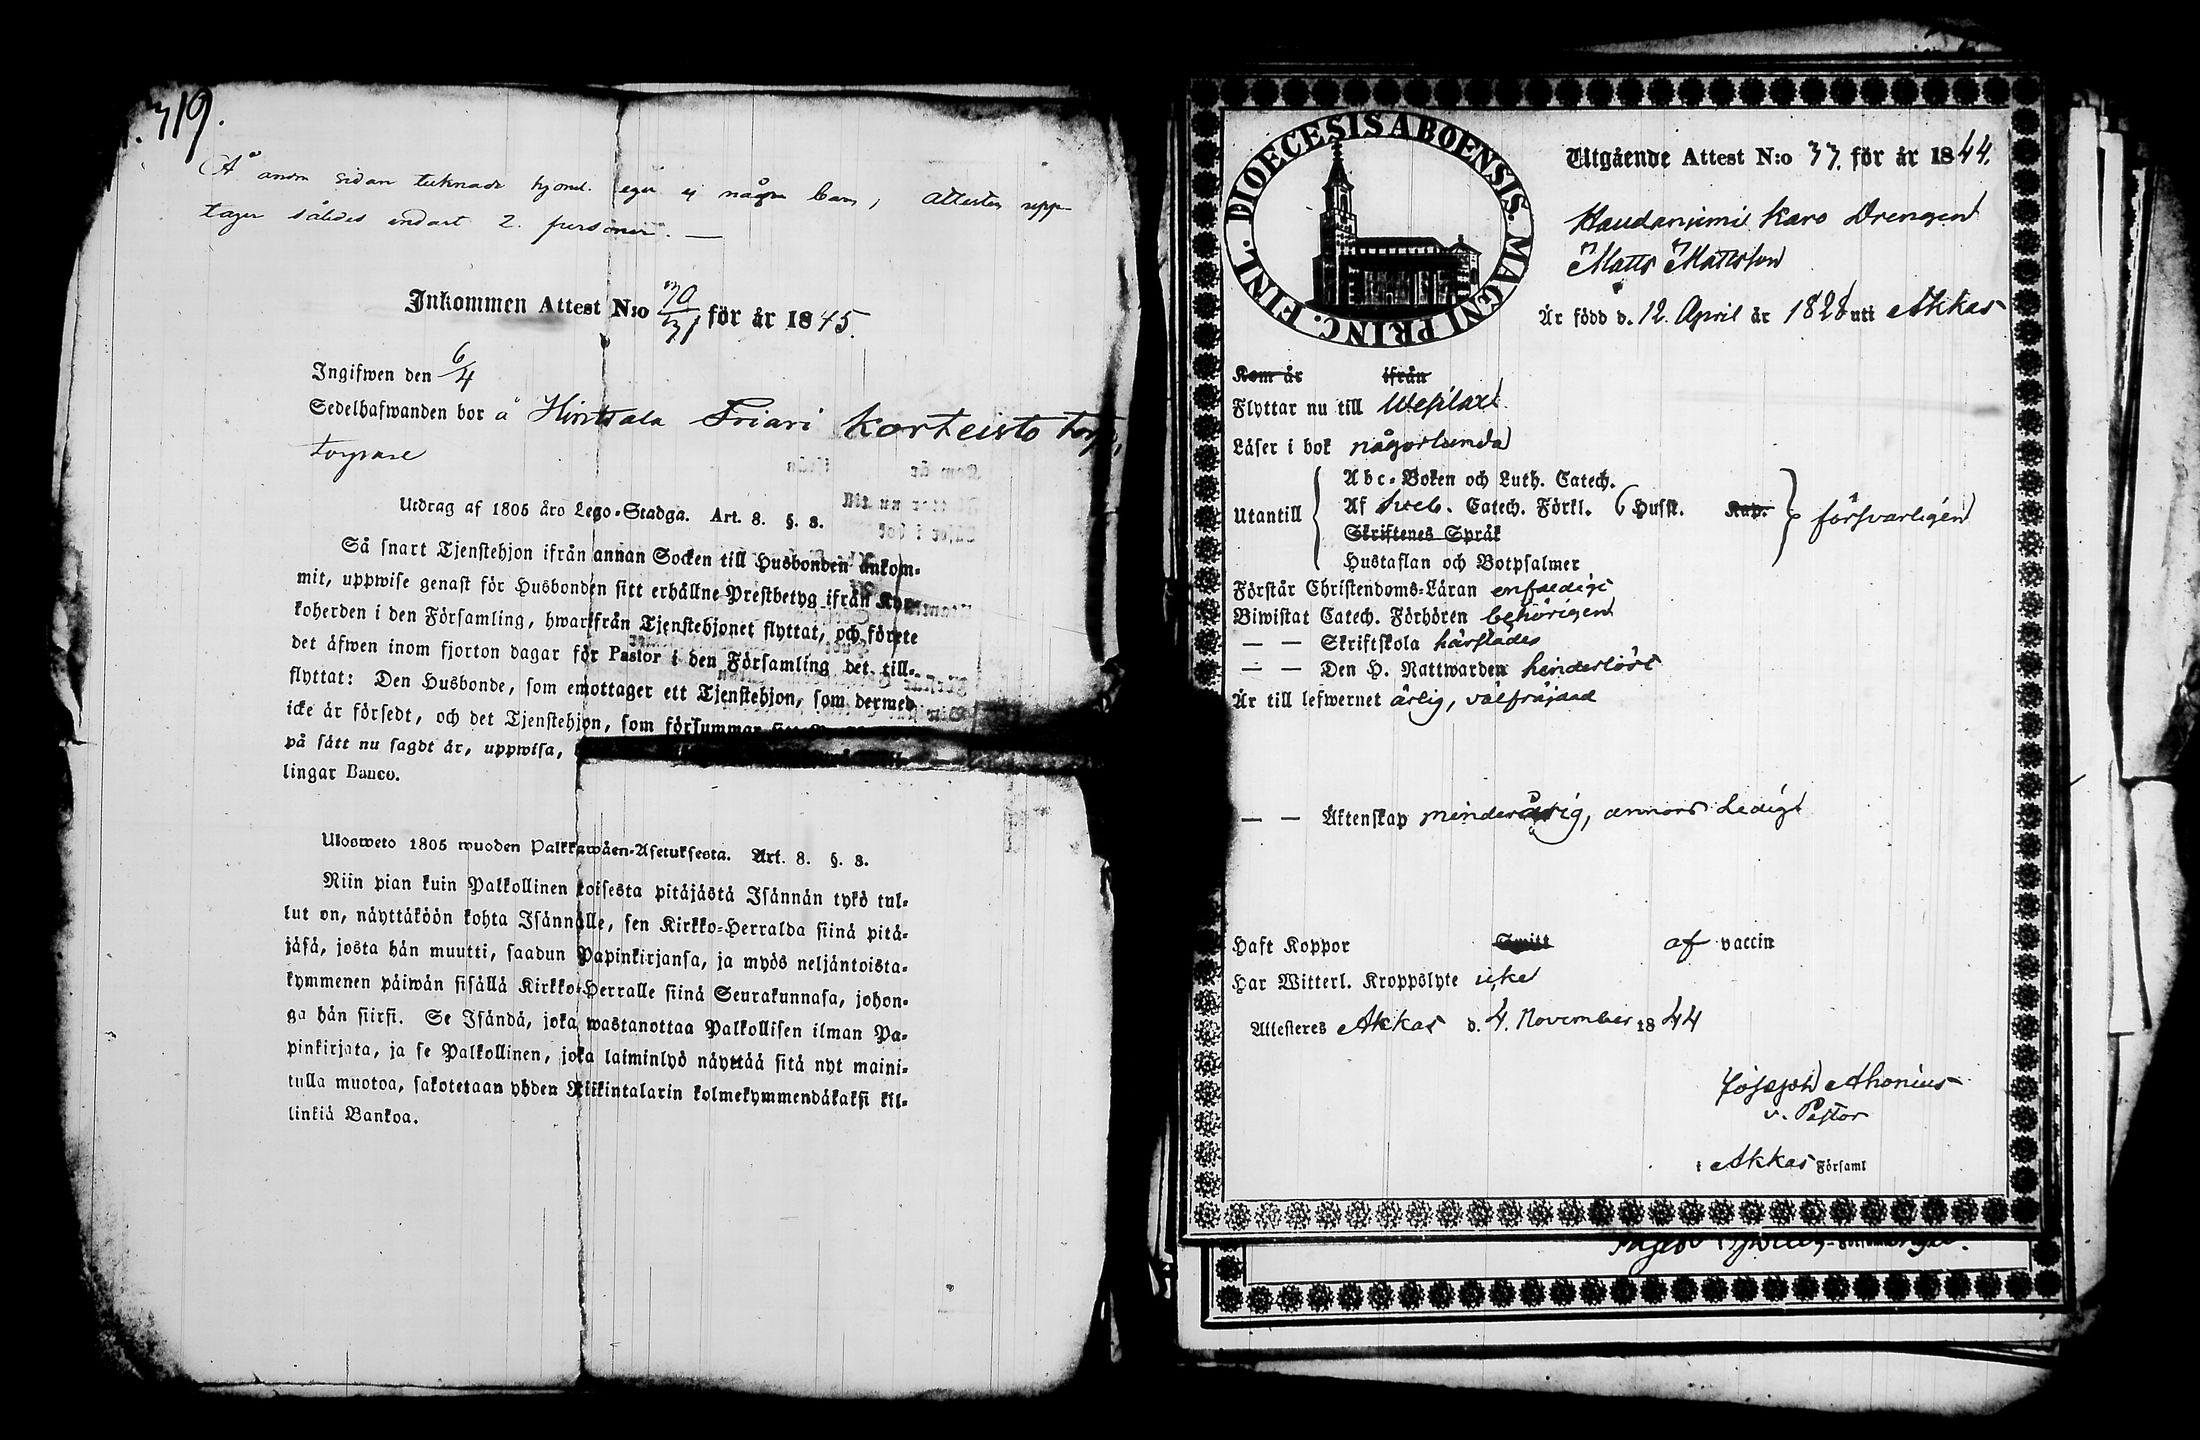 319.
Å andra sidan tecknade hjonel. ega ej några barn, attesten upp-
tager således endast 2. personer. —
Inkommen Attest N:o 30/31 för år 1845.
Ingifwen den 6/4
Sedelhafwanden bor å Hirvsala Friari Korteisto torp,
torpare
Utdrag af 1805 års Lego-Stadga. Art. 8. §. 3.
Så snart Tjenstehjon ifrån annan Socken till Husbonden ankom-
mit, uppwise genast för Husbonden sitt erhållne Prestbetyg ifrån Kyr-
koherden i den Församling, hwarifrån Tjenstehjonet flyttat, och förete
det åfwen inom fjorton dagar för Pastor i den Församling det till-
flyttat: Den Husbonde, som emottager ett Tjenstehjon, som dermed
icke är försedt, och det Tjenstehjon, som försummar
på sätt nu sagdt är, uppwisa,
lingar Banco.
Ulosweto 1805 wuoden Palkkawäen-Asetuksesta. Art. 8. §. 3.
Niin pian kuin Palkollinen toisesta pitäjästä Isännän tykö tul-
lut on, näyttäköön kohta Isännälle, sen Kirkko-Herralda siinä pitä-
jäsä, josta hän muutti, saadun Papinkirjansa, ja myös neljäntoista-
kymmenen päiwän sisällä Kirkko-Herralle siinä Seurakunnasa, johon-
ga hän siirsi. Se Isändä, joka wastanottaa Palkollisen ilman Pa-
pinkirjata, ja se Palkollinen, joka laiminlyö näyttää sitä nyt maini-
tulla muotoa, sakotetaan yhden Riikintalarin kolmekymmendäkaksi kil-
linkiä Bankoa.
DIOECESIS ABOENSIS. MAGNI PRINC. FINL.
Utgående Attest N:o 33. för år 1844.
Haudanjimi Karo Drengen
Matts Mattsson
Är född d. 12 April år 1828 uti Akkas
Kom år ifrån
Flyttar nu till Wesilax
Läser i bok någorlunda
Utantill
Abc-Boken och Luth. Catech.
Af Sveb. Catech. Förkl. 6 Husst. Kap.
Skriftenes Språk
Hustaflan och Botpsalmer
försvarligen
Förstår Christendoms-Läran enfaldigt
Biwistat Catech. Förhören behörigen
— — Skriftskola härstädes
— — Den H. Nattwarden hinderlöst
Är till lefwernet ärlig, välfräjdad
— — Äktenskap minderårig, annars Ledigt
Haft Koppor Smitt af vaccin
Har Witterl. Kroppslyte icke
Attesteres Akkas d. 4. November 1844
Joseph Ahonius
v. Pastor
i Akkas Församl